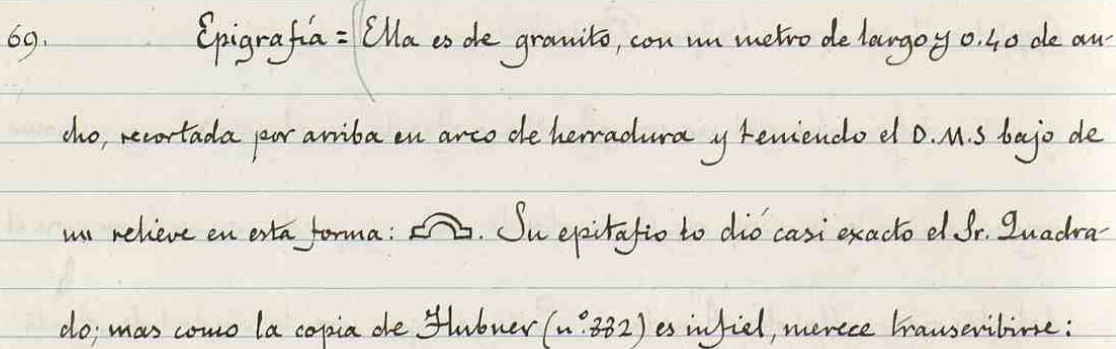 69. Epigrafía = (Ella es de granito, con un metro de largo y 0.40 de an-
cho, recortada por arriba en arco de herradura y teniendo el D.M.S bajo de
un relieve en esta forma: . Su epitafio lo dió casi exacto el Sr. Quadra-
do; mas como la copia de Hubner (nº 882) es infiel, merece transcribirse: